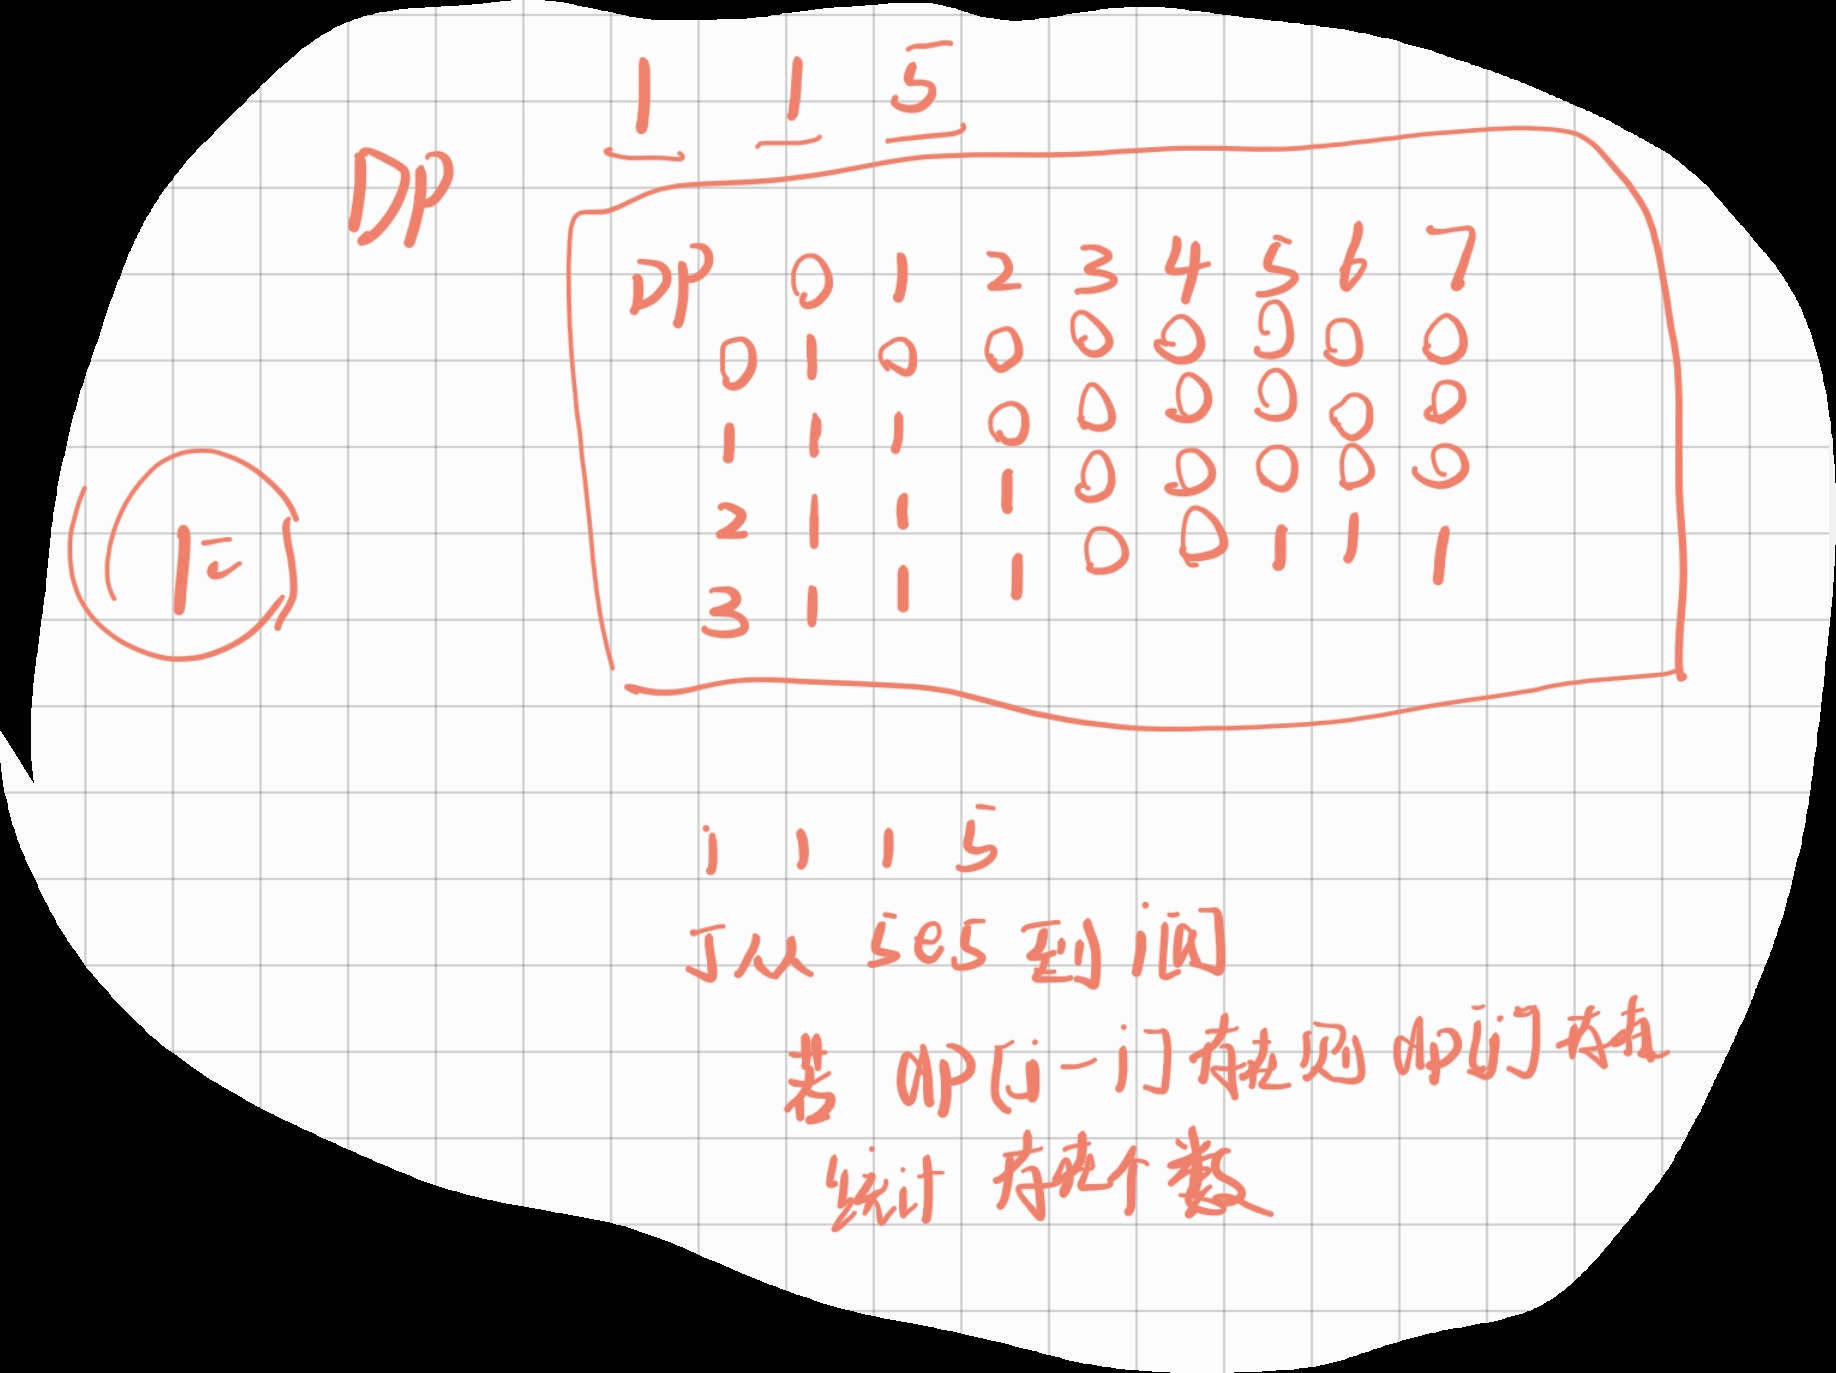 1 1 5
DP
DP 0 1 2 3 4 5 6 7
0 1 0 0 0 0 0 0 0
1 1 1 0 0 0 0 0 0
2 1 1 1 0 0 0 0 0
3 1 1 1 0 0 1 1 1
i 1 1 5
J从 到
若 dp[j-i]存在则 dp[j]存在
统计 存在个数